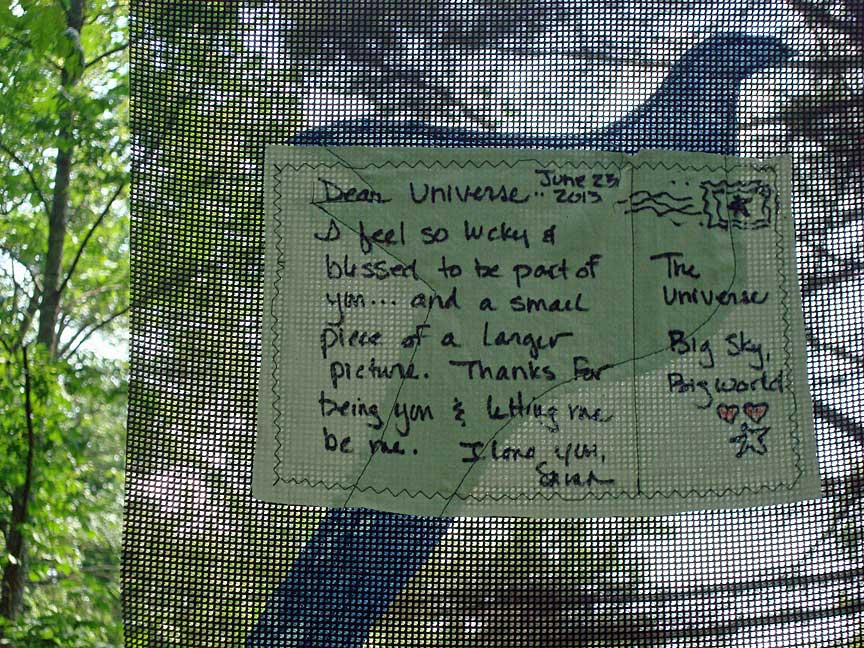 Dear Universe..
June 23,
2013
I feel so lucky &
blessed to be part of
you... and a small
piece of a larger
picture. Thanks for
being you & letting me
be me. I love you,
Sarah
The
Universe
Big Sky,
Big world